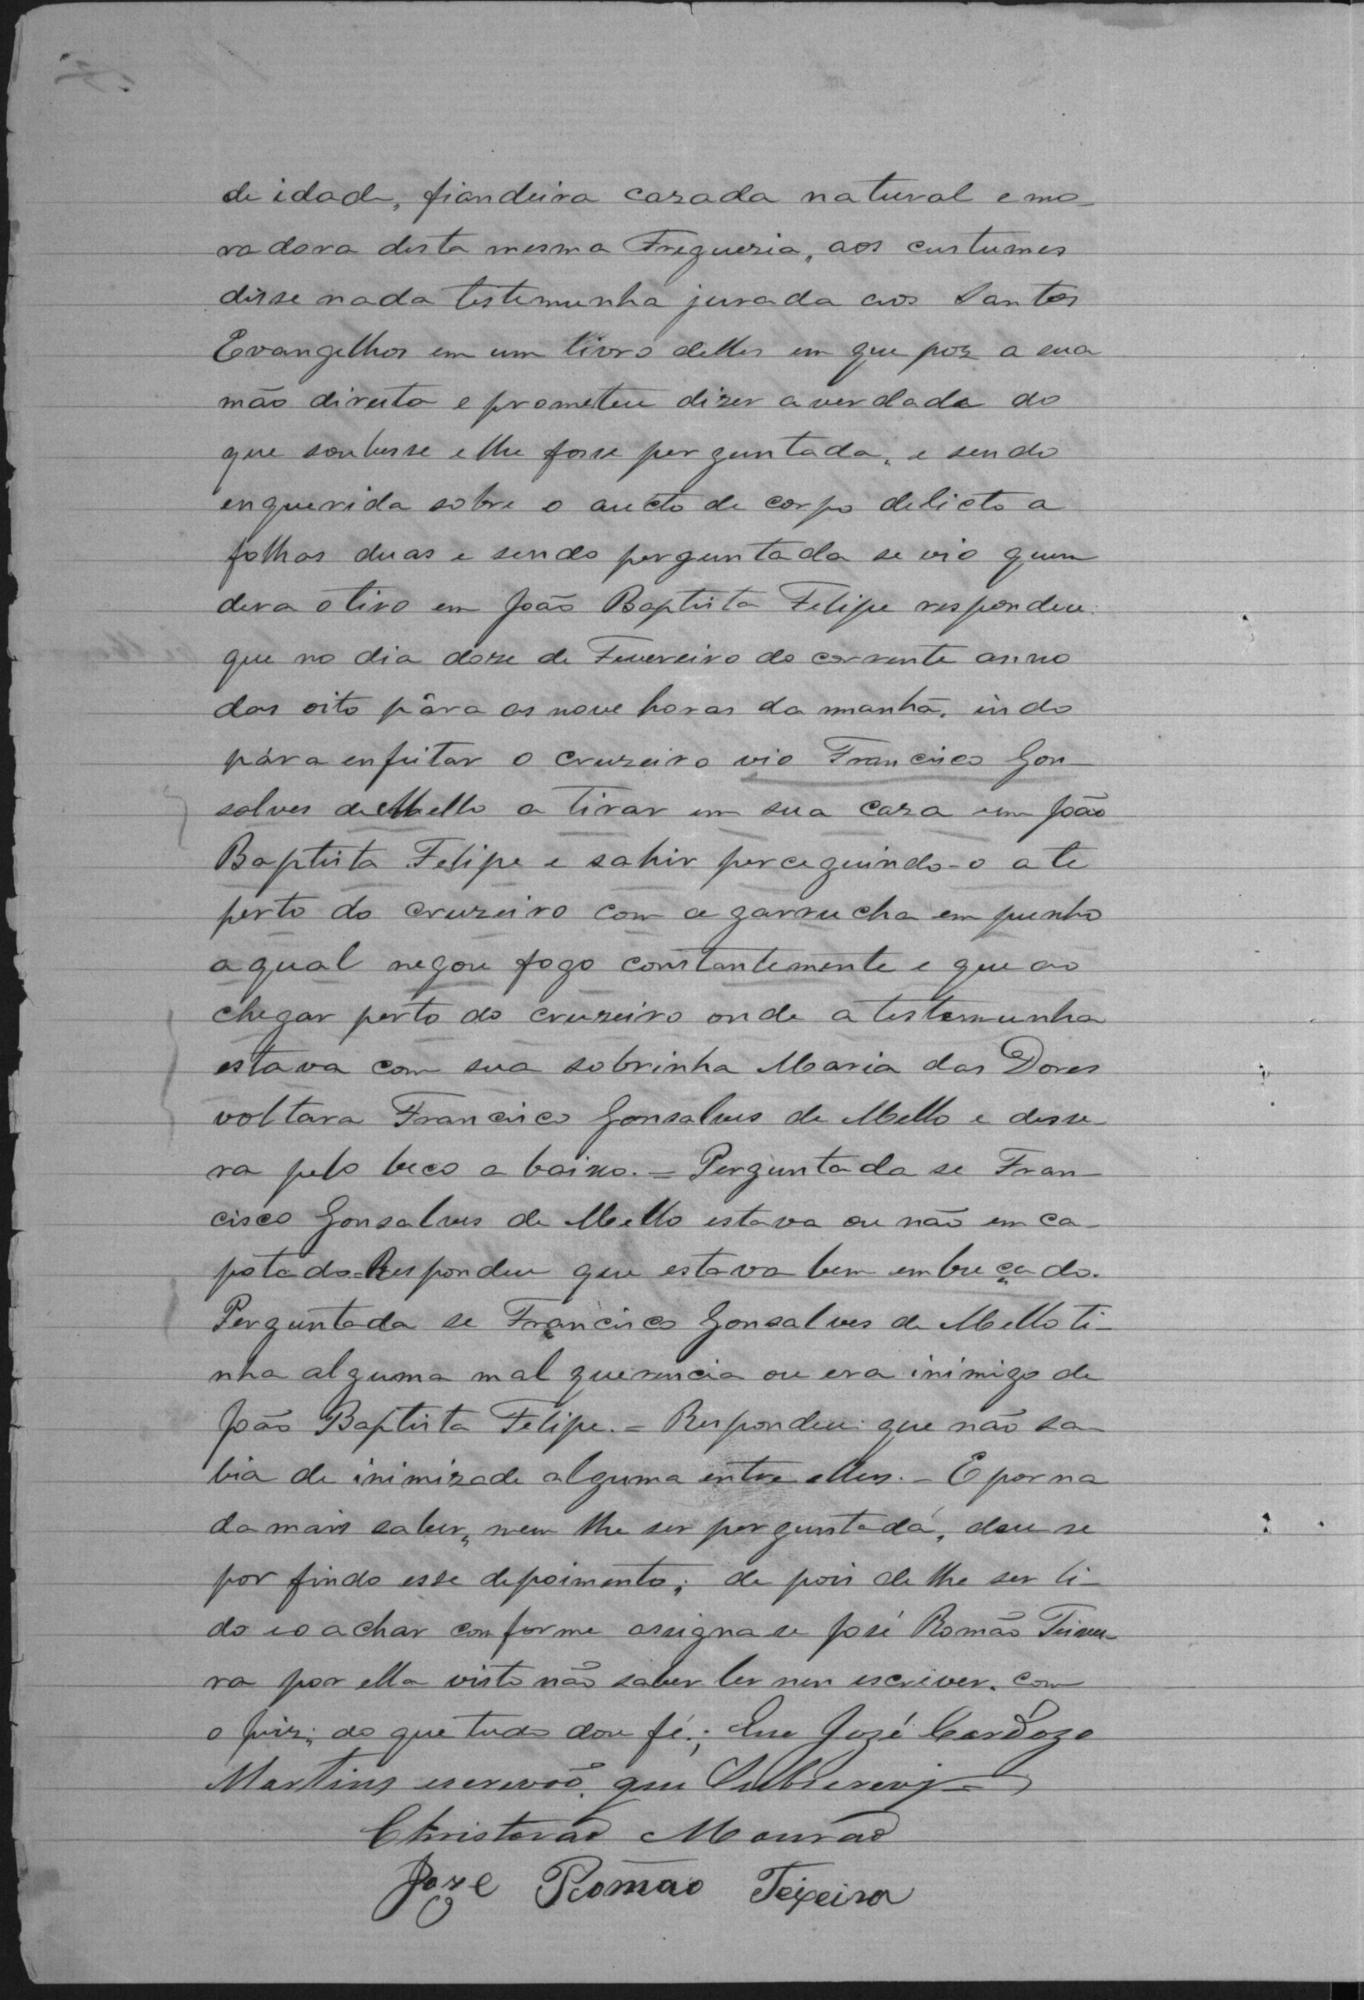 de idade, fiandeira cazada natural e mo-
radora desta mesma Freguezia, aos custumes
disse nada testemunha jurada aos Santos
Evangelhos em um livro delles em que poz a sua
mão direita e prometeu dizer a verdade do
que soubesse e lhe fosse perguntada, e sendo
enquerida sobre o aucto de corpo delicto a
folhas duas e sendo perguntada se vio quem
dera o tiro em João Baptista Felipe respondeu:
que no dia doze de Fevereiro do corrente anno
das oito pâra as nove horas da manhã, indo
pára enfeitar o cruzeiro vio Francisco Gon-
salves de Mello a tirar em sua caza um João
Baptista Felipe e sahir perceguindo-o ate
perto do cruzeiro com a garrucha em punho
a qual negou fogo constantemente e que ao
chegar perto do cruzeiro onde a testemunha
estava com sua sobrinha Maria das Dores
voltara Francisco Gonsalves de Mello e desse-
ra pelo beco a baixo. = Perguntada se Fran-
cisco Gonsalves de Mello estava ou não em ca-
potado = Respondeu que estava bem embuçado.
Perguntada se Francisco Gonsalves de Mello ti-
nha alguma mal querencia ou era inimigo de
João Baptista Felipe. = Respondeu: que não sa-
bia de inimizade alguma entre elles. - E por na
da mais saber, nem lhe ser perguntadá, deu se
por findo esse depoimento; de pois de lhe ser li-
do e o achar conforme assigna se José Romão Teixei-
ra por ella visto não saber ler nem escrever, com
o juiz; do que tudo dou fé.; Eu José Cardozo
Martins escrevão, que Subscrevj
Christovaõ Mouraõ
Joze Romão Teixeira